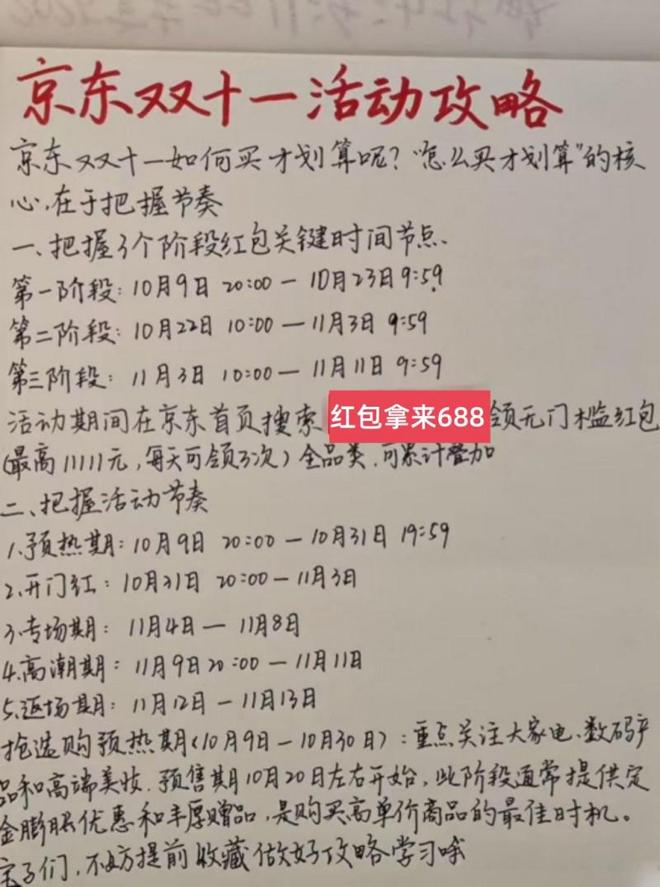 京东双十一活动攻略
京东双十一如何买才划算呢?“怎么买才划算”的核
心,在于把握节奏
一、把握3个阶段红包关键时间节点.
第一阶段:10月9日 20:00 — 10月23日 9:59
第二阶段:10月22日 10:00 — 11月3日 9:59
第三阶段:11月3日 10:00 — 11月11日 9:59
活动期间在京东首页搜索 红包拿来688 领无门槛红包
(最高11111元,每天可领3次)全品类,可累计叠加
二、把握活动节奏
1.预热期:10月9日 20:00 — 10月31日 19:59
2.开门红:10月31日 20:00 — 11月3日
3.专场期:11月4日 — 11月8日
4.高潮期:11月9日 20:00 — 11月11日
5.返场期:11月12日 — 11月13日
抢选购预热期(10月9日 — 10月30日):重点关注大家电、数码产
品和高端美妆.预售期10月20日左右开始,此阶段通常提供定
金膨胀优惠和丰厚赠品,是购买高单价商品的最佳时机。
宝子们,不妨提前收藏做好攻略学习哦